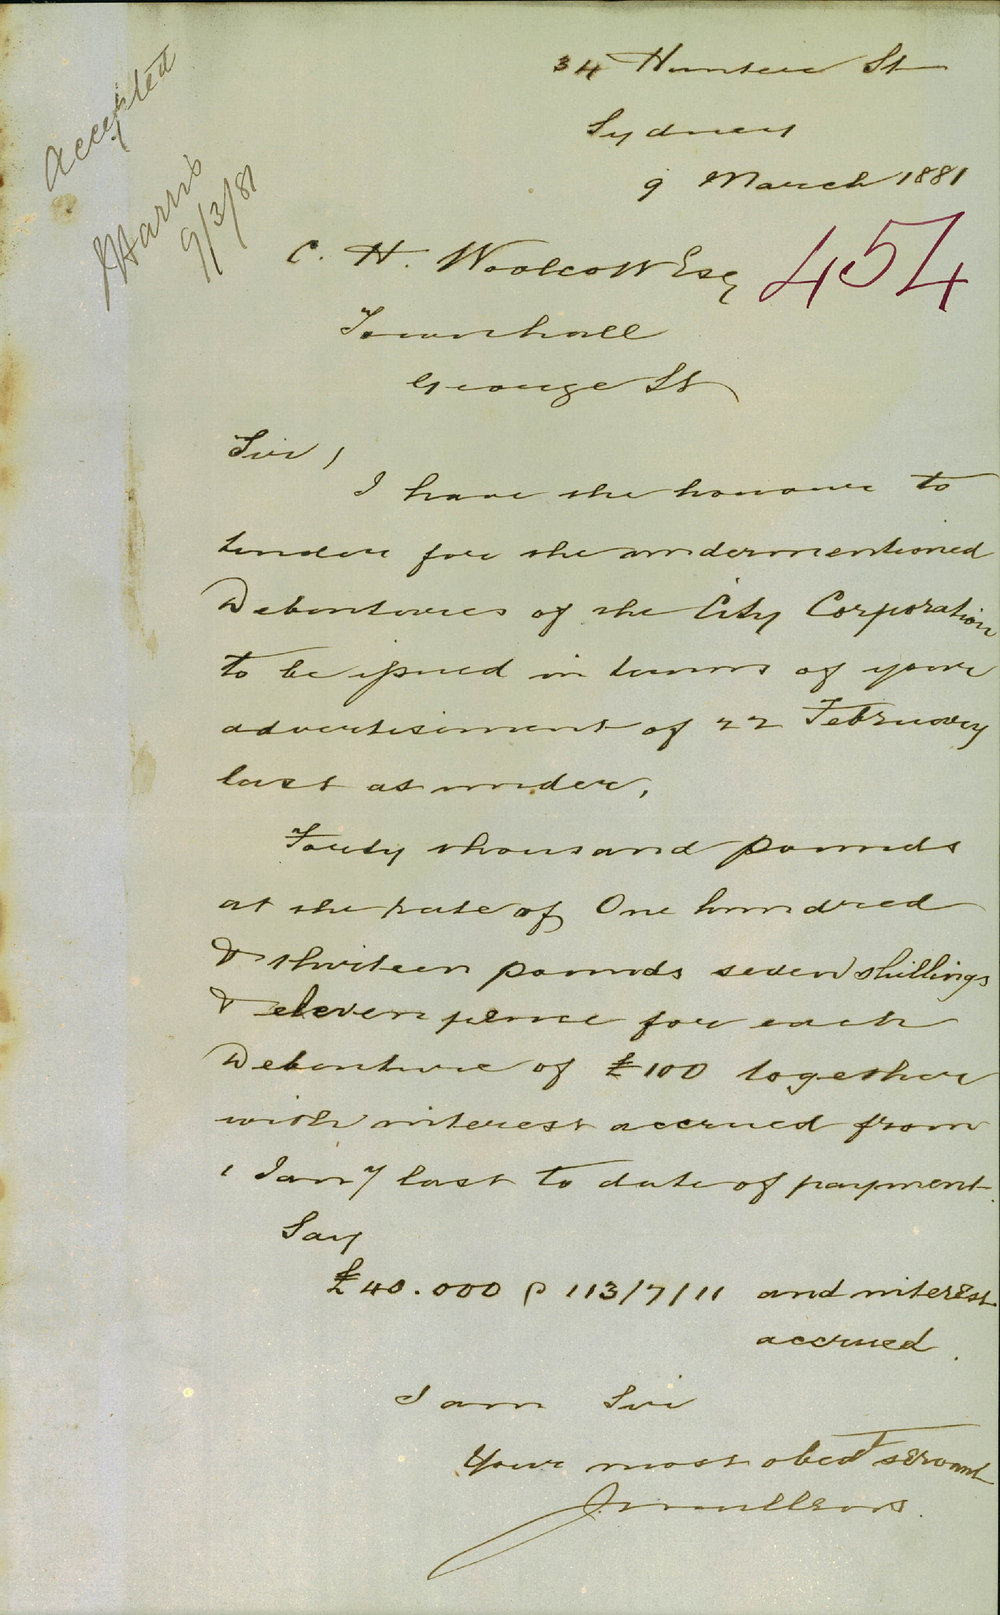 Accepted
J Harris
9/3/81
34 Hunter St
Sydney
9 March 1881
454
C. H. Woolcott Esq
Townhall
George St
Sir,
I have the honour to
tender for the undermentioned
Debentures of the City Corporation
to be issued in terms of your
advertisement of 22 February
last as under,
Forty thousand pounds
at the rate of One hundred
& thirteen pounds seven shillings
& eleven pence for each
Debenture of £100 together
with interest accrued from
1 Jany last to date of payment.
Say
£40.000 @ 113/7/11 and interest
accrued.
I am Sir
Your most obedt servant